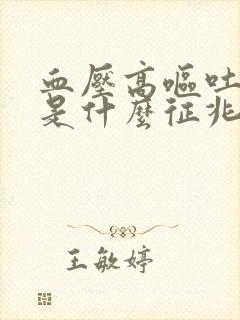 血壓高嘔吐
是什麼征兆
王敏婷